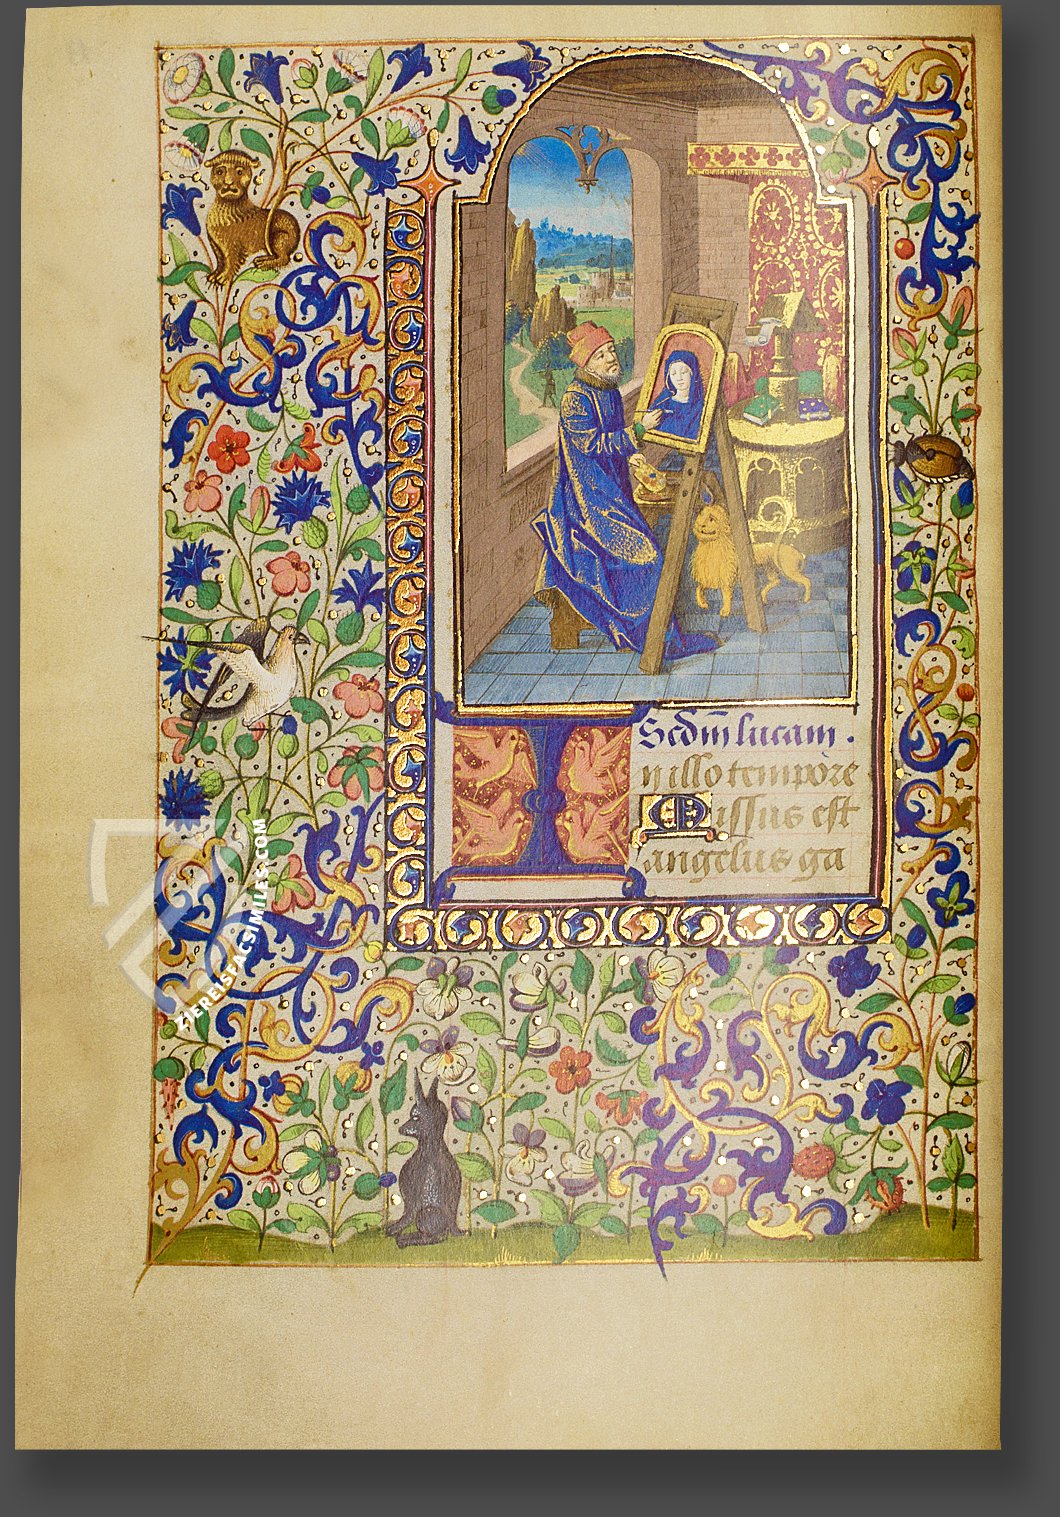 Scdm̄ lucam .
In illo tempore
Missus est
angelus ga
ZIEREISFACSIMILES.COM